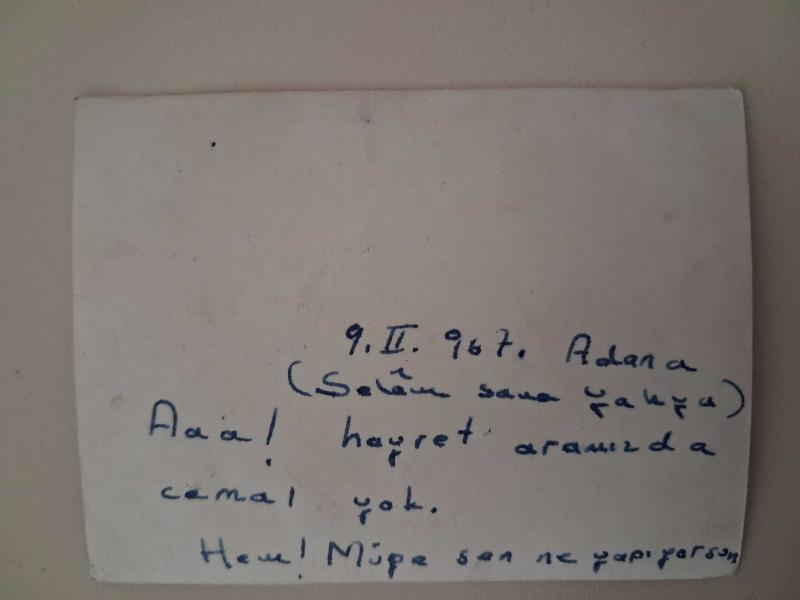 9.II.967. Adana
(Selâm sana Yahya)
Aaa! hayret aramızda
cemal yok.
Hem! Müge sen ne yapıyorsun